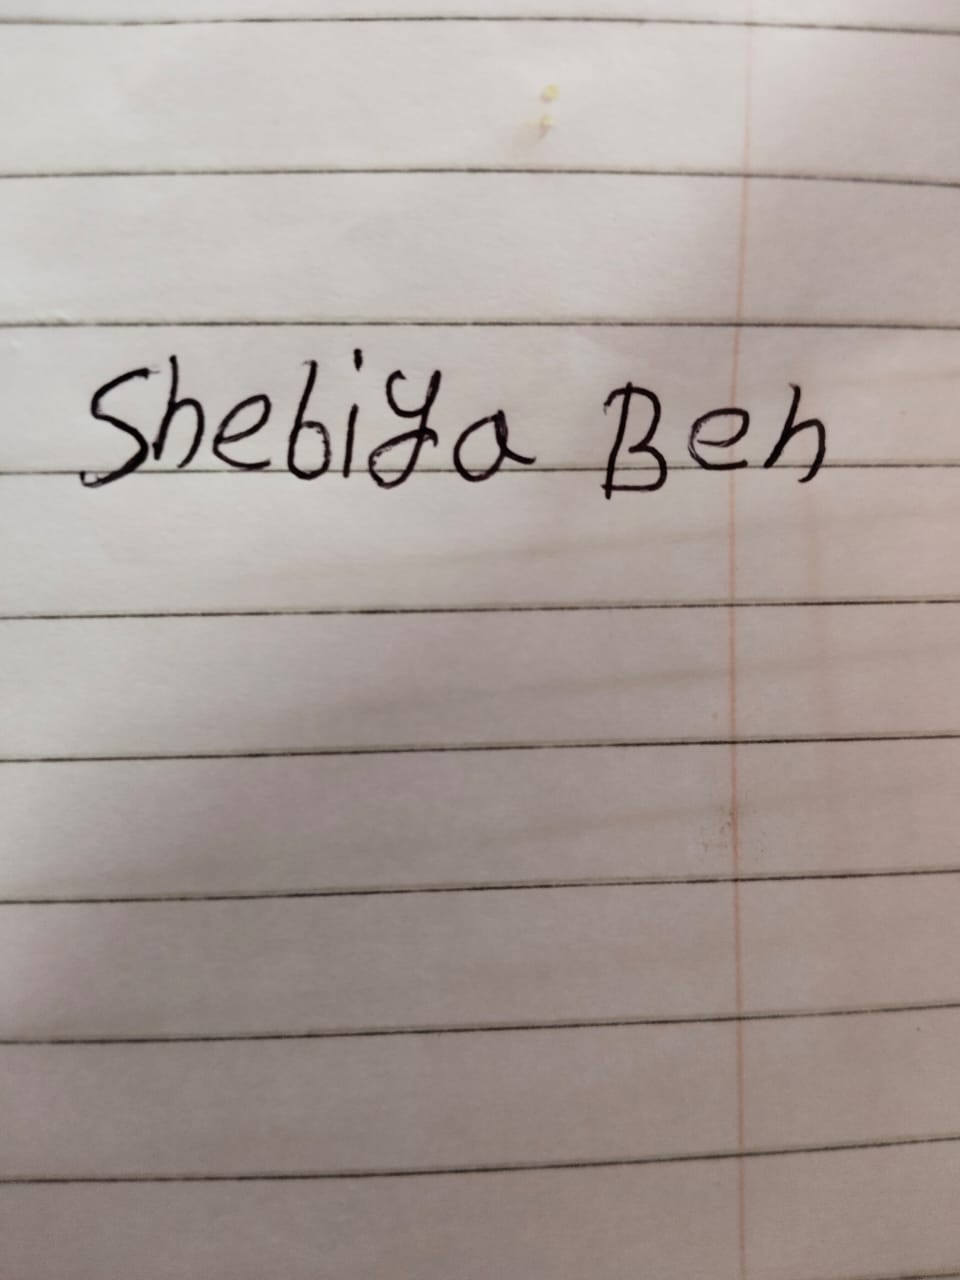 Shebiya Beh